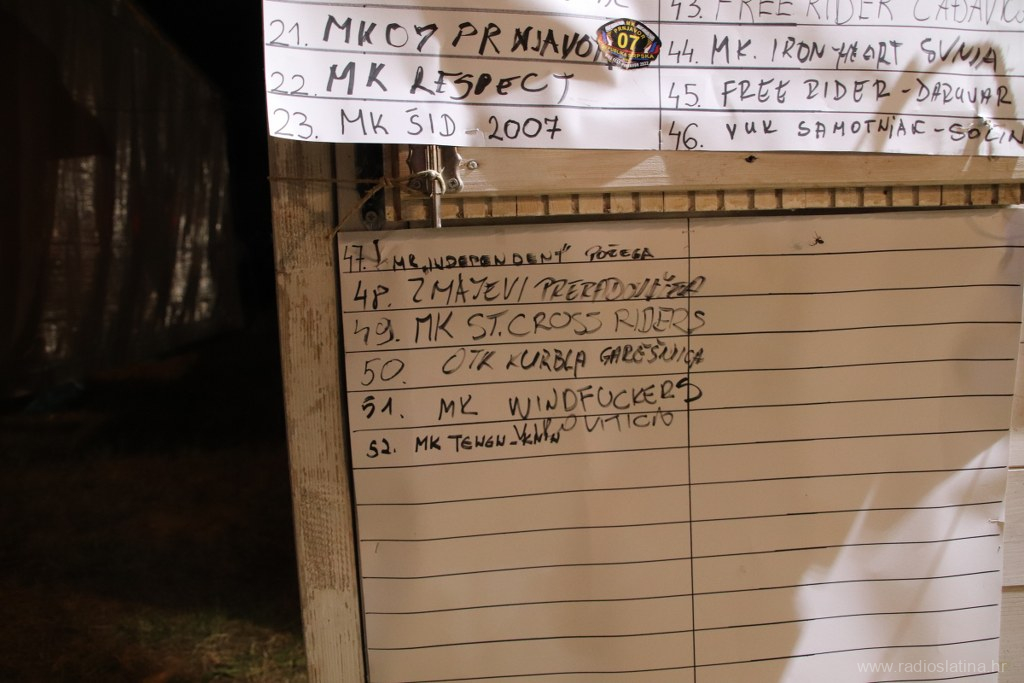 21. MK 07 PRNJAVOR
07
22. MK RESPECT
23. MK ŠID - 2007
43. FREE RIDER ČAĐAVICA
44. MK. IRON HEART SUNJA
45. FREE RIDER - DARUVAR
46. VUK SAMOTNJAK - SOČIN
47. MK "INDEPENDENT" POŽEGA
48. ZMAJEVI
49. MK ST. CROSS RIDERS
50. OTK KURBLA GAREŠNICA
51. MK WINDFUCKERS
VIROVITICA
52. MK TENGN - KNIN
www.radioslatina.hr